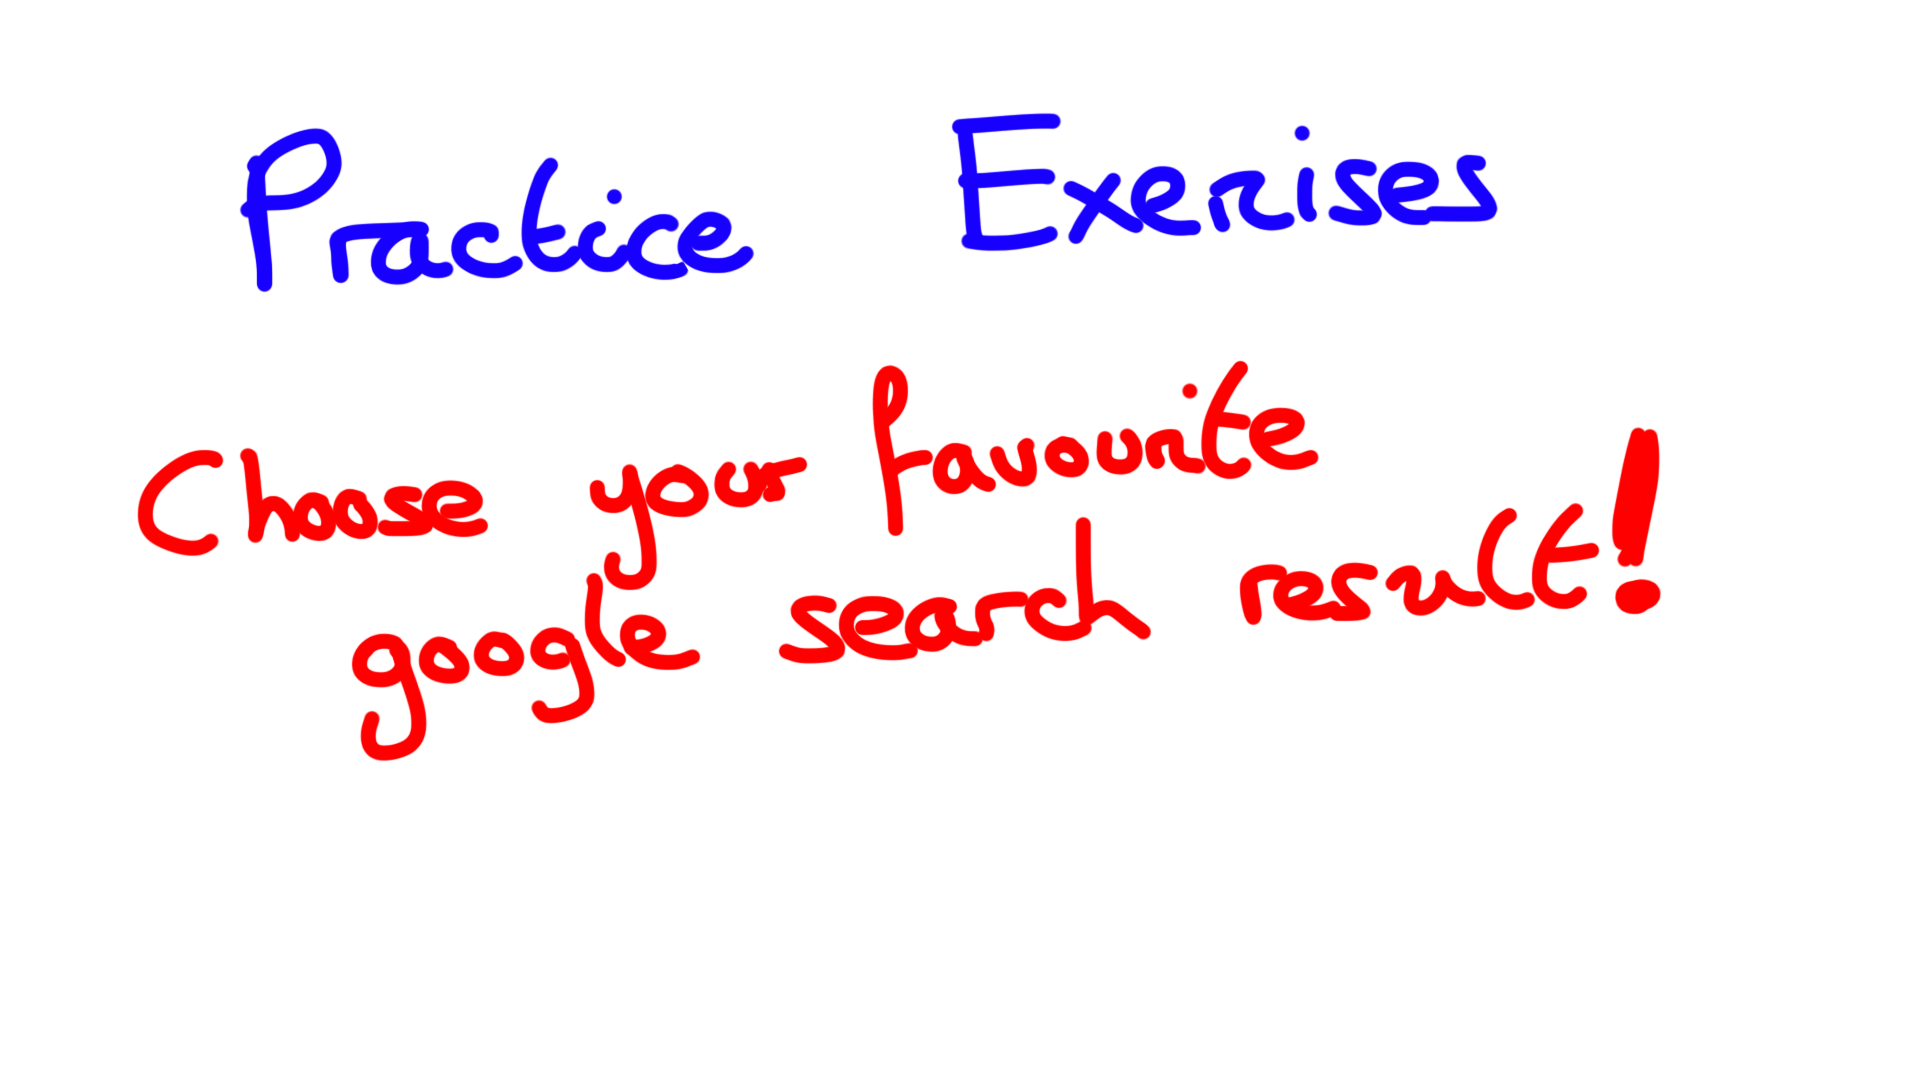 Practice Exercises
Choose your favourite
google search result!